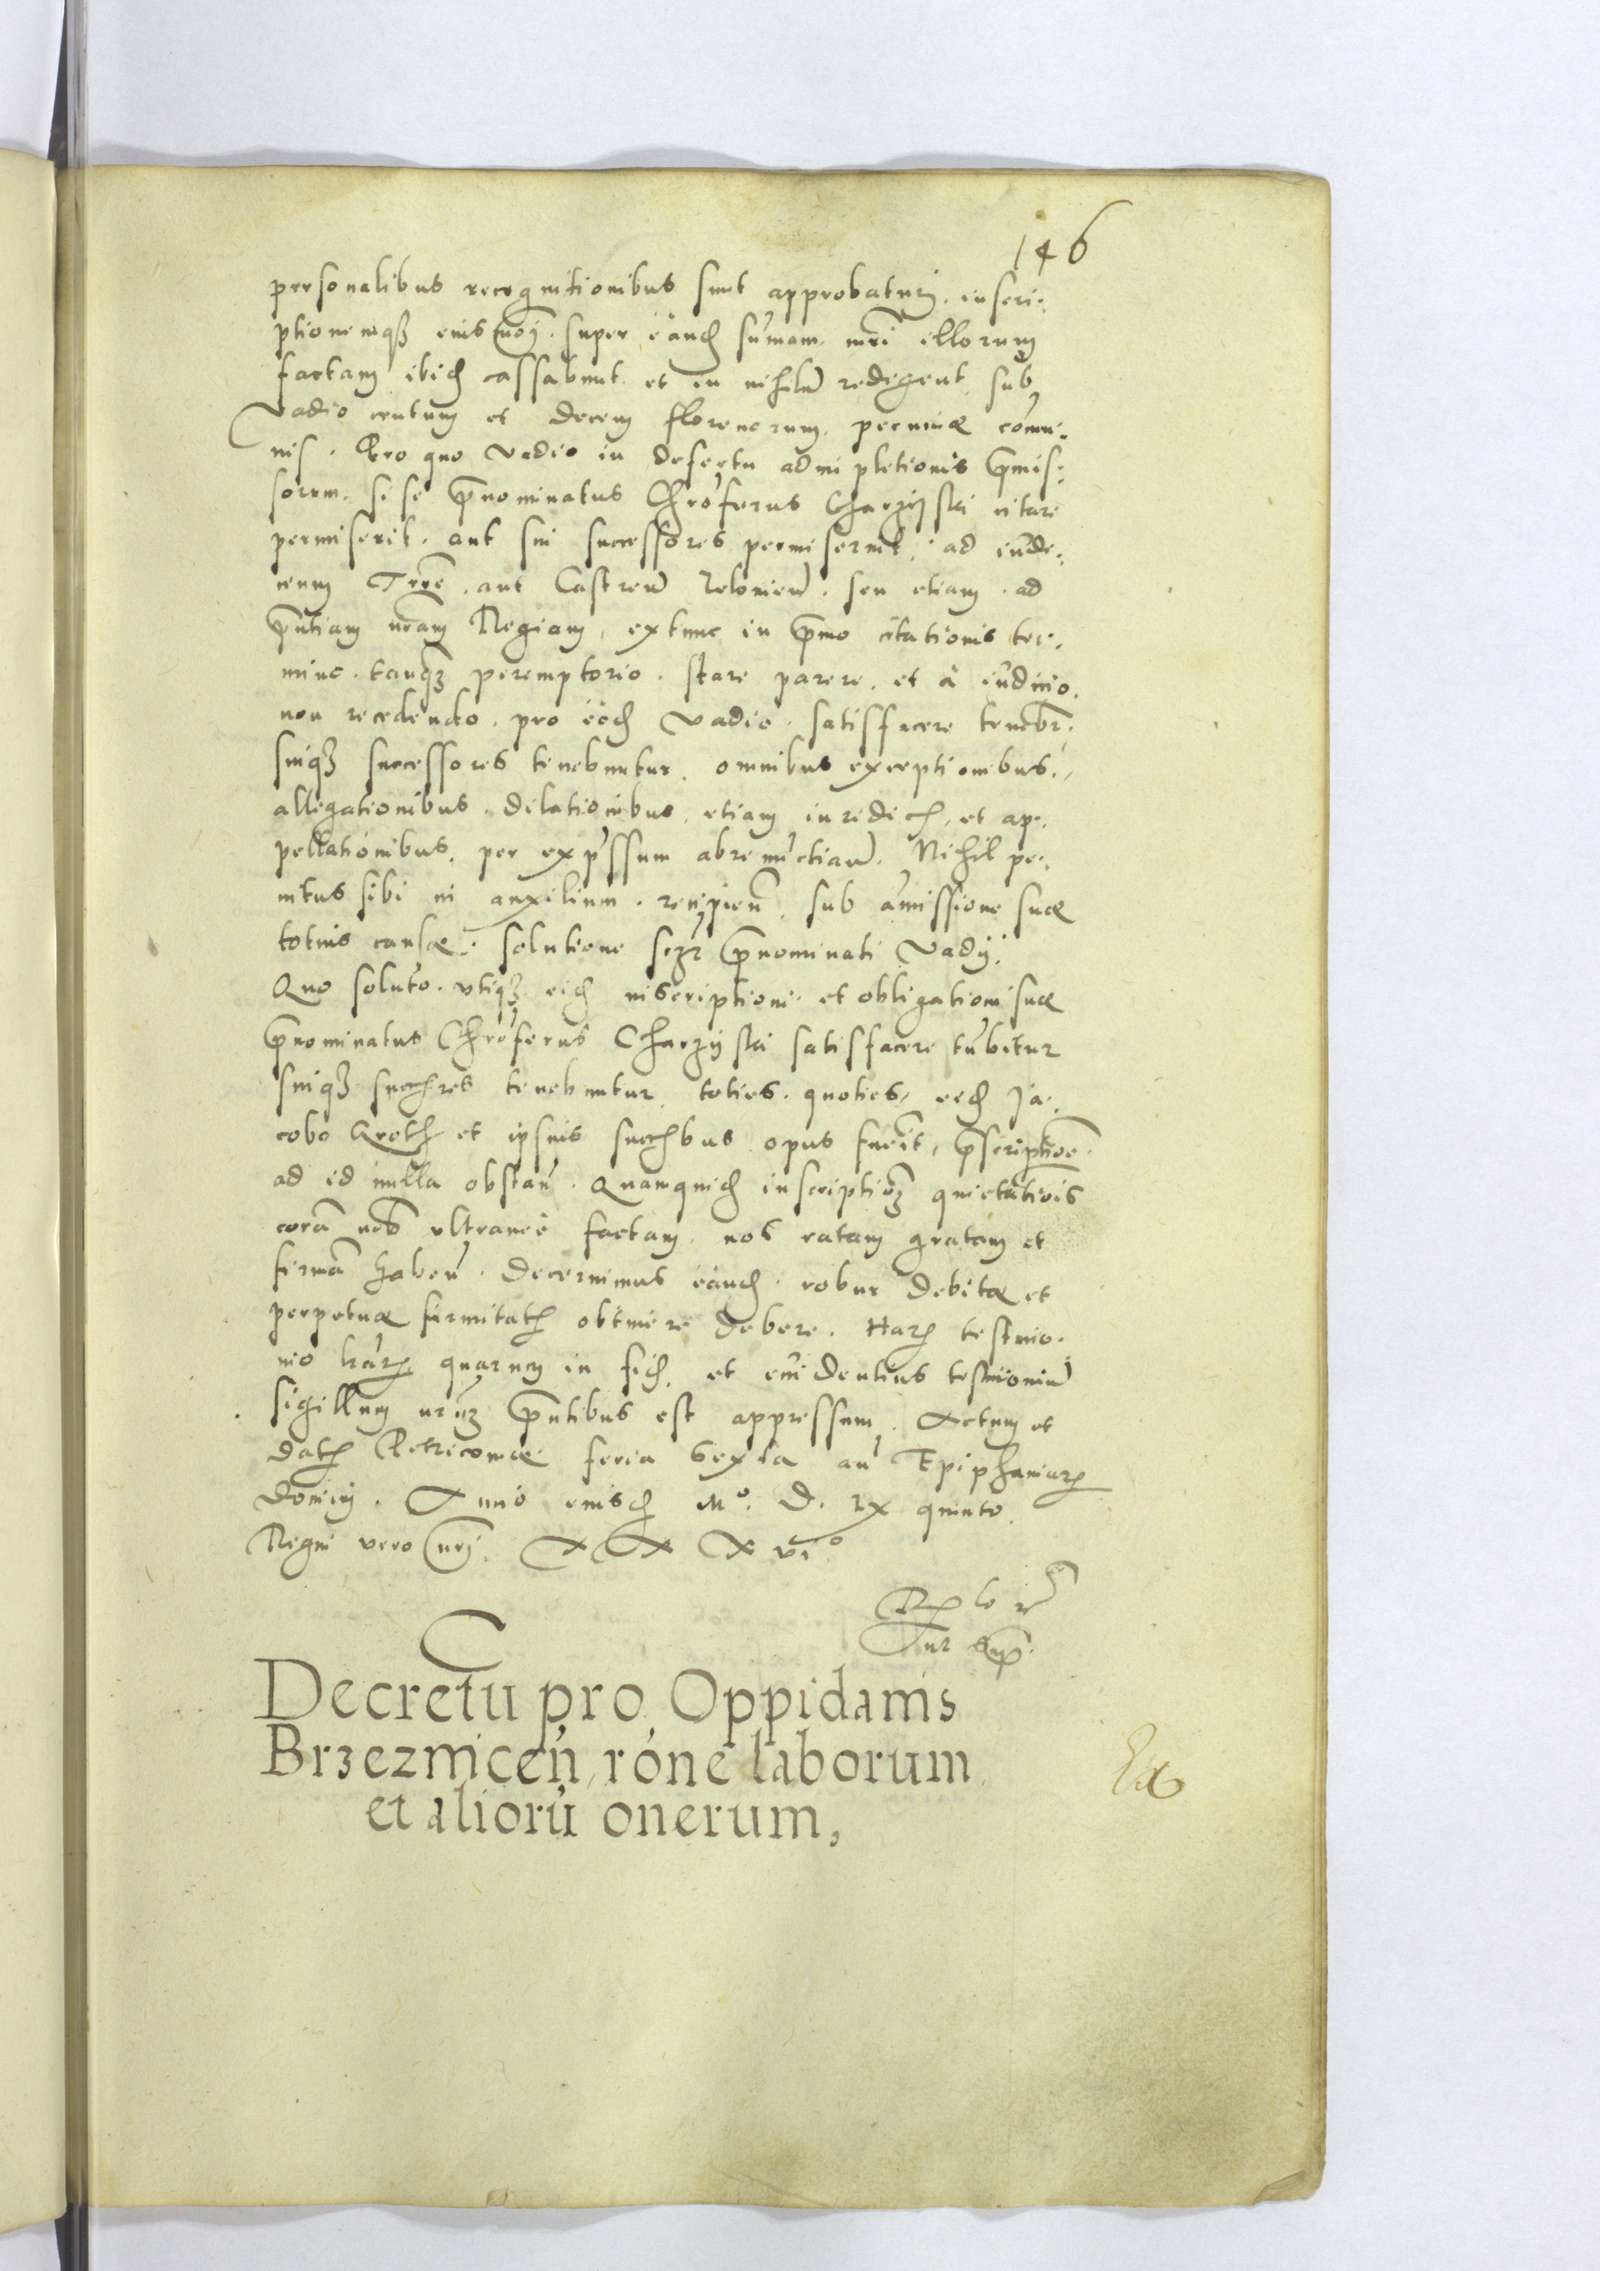 146
personalibus recognitionibus sunt approbaturi. inscri:
ptionemqȝ eius super eandem sum̄am. mr̄i illorum
factam ibidem cassabunt et in nihilū redigent sub
vadio centum et decem florenorum. pecuniæ com̄u:
nis. Pro quo vadio in defectu adimpletionis p̄mis:
sorum. si se p̄nominatus Chrōferus Charzijski citare
permiserit. aut sui successores permiserint. ad iude:
cium Terrē. aut Castreñ seu etiam. ad
p̄ntiam nr̄am Regiam, extunc in p̄mo citationis ter:
mino. tanqȝ peremptorio. stare parere. et à iudicio.
non recedendo. pro eodem vadio. satisfacere tenebr̄.
suiqȝ successores tenebuntur. omnibus exceptionibus,
allegationibus. dilationibus, etiam iuridicis, et ap:
pellationibus. per exp̄ssum abrenūctiañ. Nihil pe:
nitus sibi in auxilium. recipieñ. sub amissione suæ
totius causæ. solutione p̄nominati vadij.
Quo soluto. utiqȝ eidem inscriptioni et obligationi suæ
p̄nominatus Chrōferus Charzijski satisfacere tn̄bitur
suiqȝ succ̄res tenebuntur. toties. quoties, eidem Ja:
cobo et ipsius succ̄bus opus fuerit, p̄scriptioē
ad id nulla obstañ. Quamquidem inscriptioȝ quietatiōis
corā nob̄ ultraneè factam. nos ratam gratam et
firmā habeñ. decernimus eandem. robur debitæ et
perpetuæ firmitatis obtinere debere. Harum testimo:
nio lr̄arum quarum in fidem. et euidentius testimoniū
sigillum nr̄um p̄ntibus est appressum. Actum et
datum Petricouiæ feria sexta añ Epiphaniarum
Domini. Anno eiusdem Mᵒ. D. LX quinto.
Regni vero nr̄i. XXXVIᵒ
Decretū pro Oppidanis
Brzezniceñ, rōne laborum
et aliorū onerum,